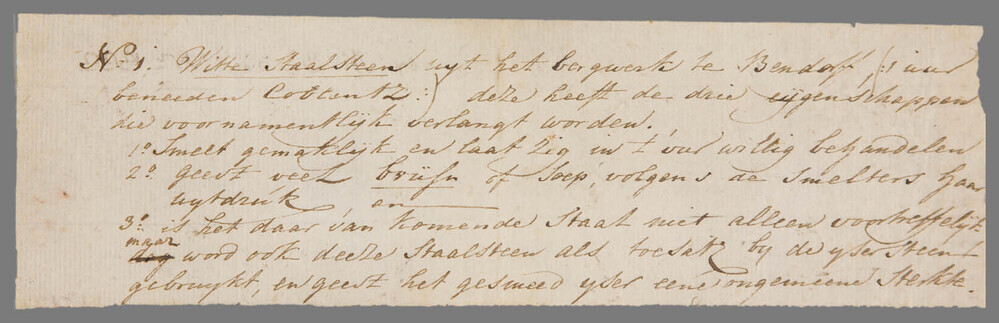 No. 1. Witte Staalsteen uyt het bergwerk te Bendorf, (:1 uur
beneeden Coblentz:) deze heeft de drie eijgenschappen
die voornamentlijk verlangt worden.
1o. Smelt gemaklijk en laat zig in 't vuur willig behandelen
2o. geeft veel bruijn of Soep, volgens de Smelters haar
uytdruk en
3o. is het daar van komende Staal niet alleen voortreffelijk
maar
word ook deeze Staalsteen als toesatz by de yser Steen
gebruykt, en geeft het gesmeed yser eene ongemeene Sterkte.